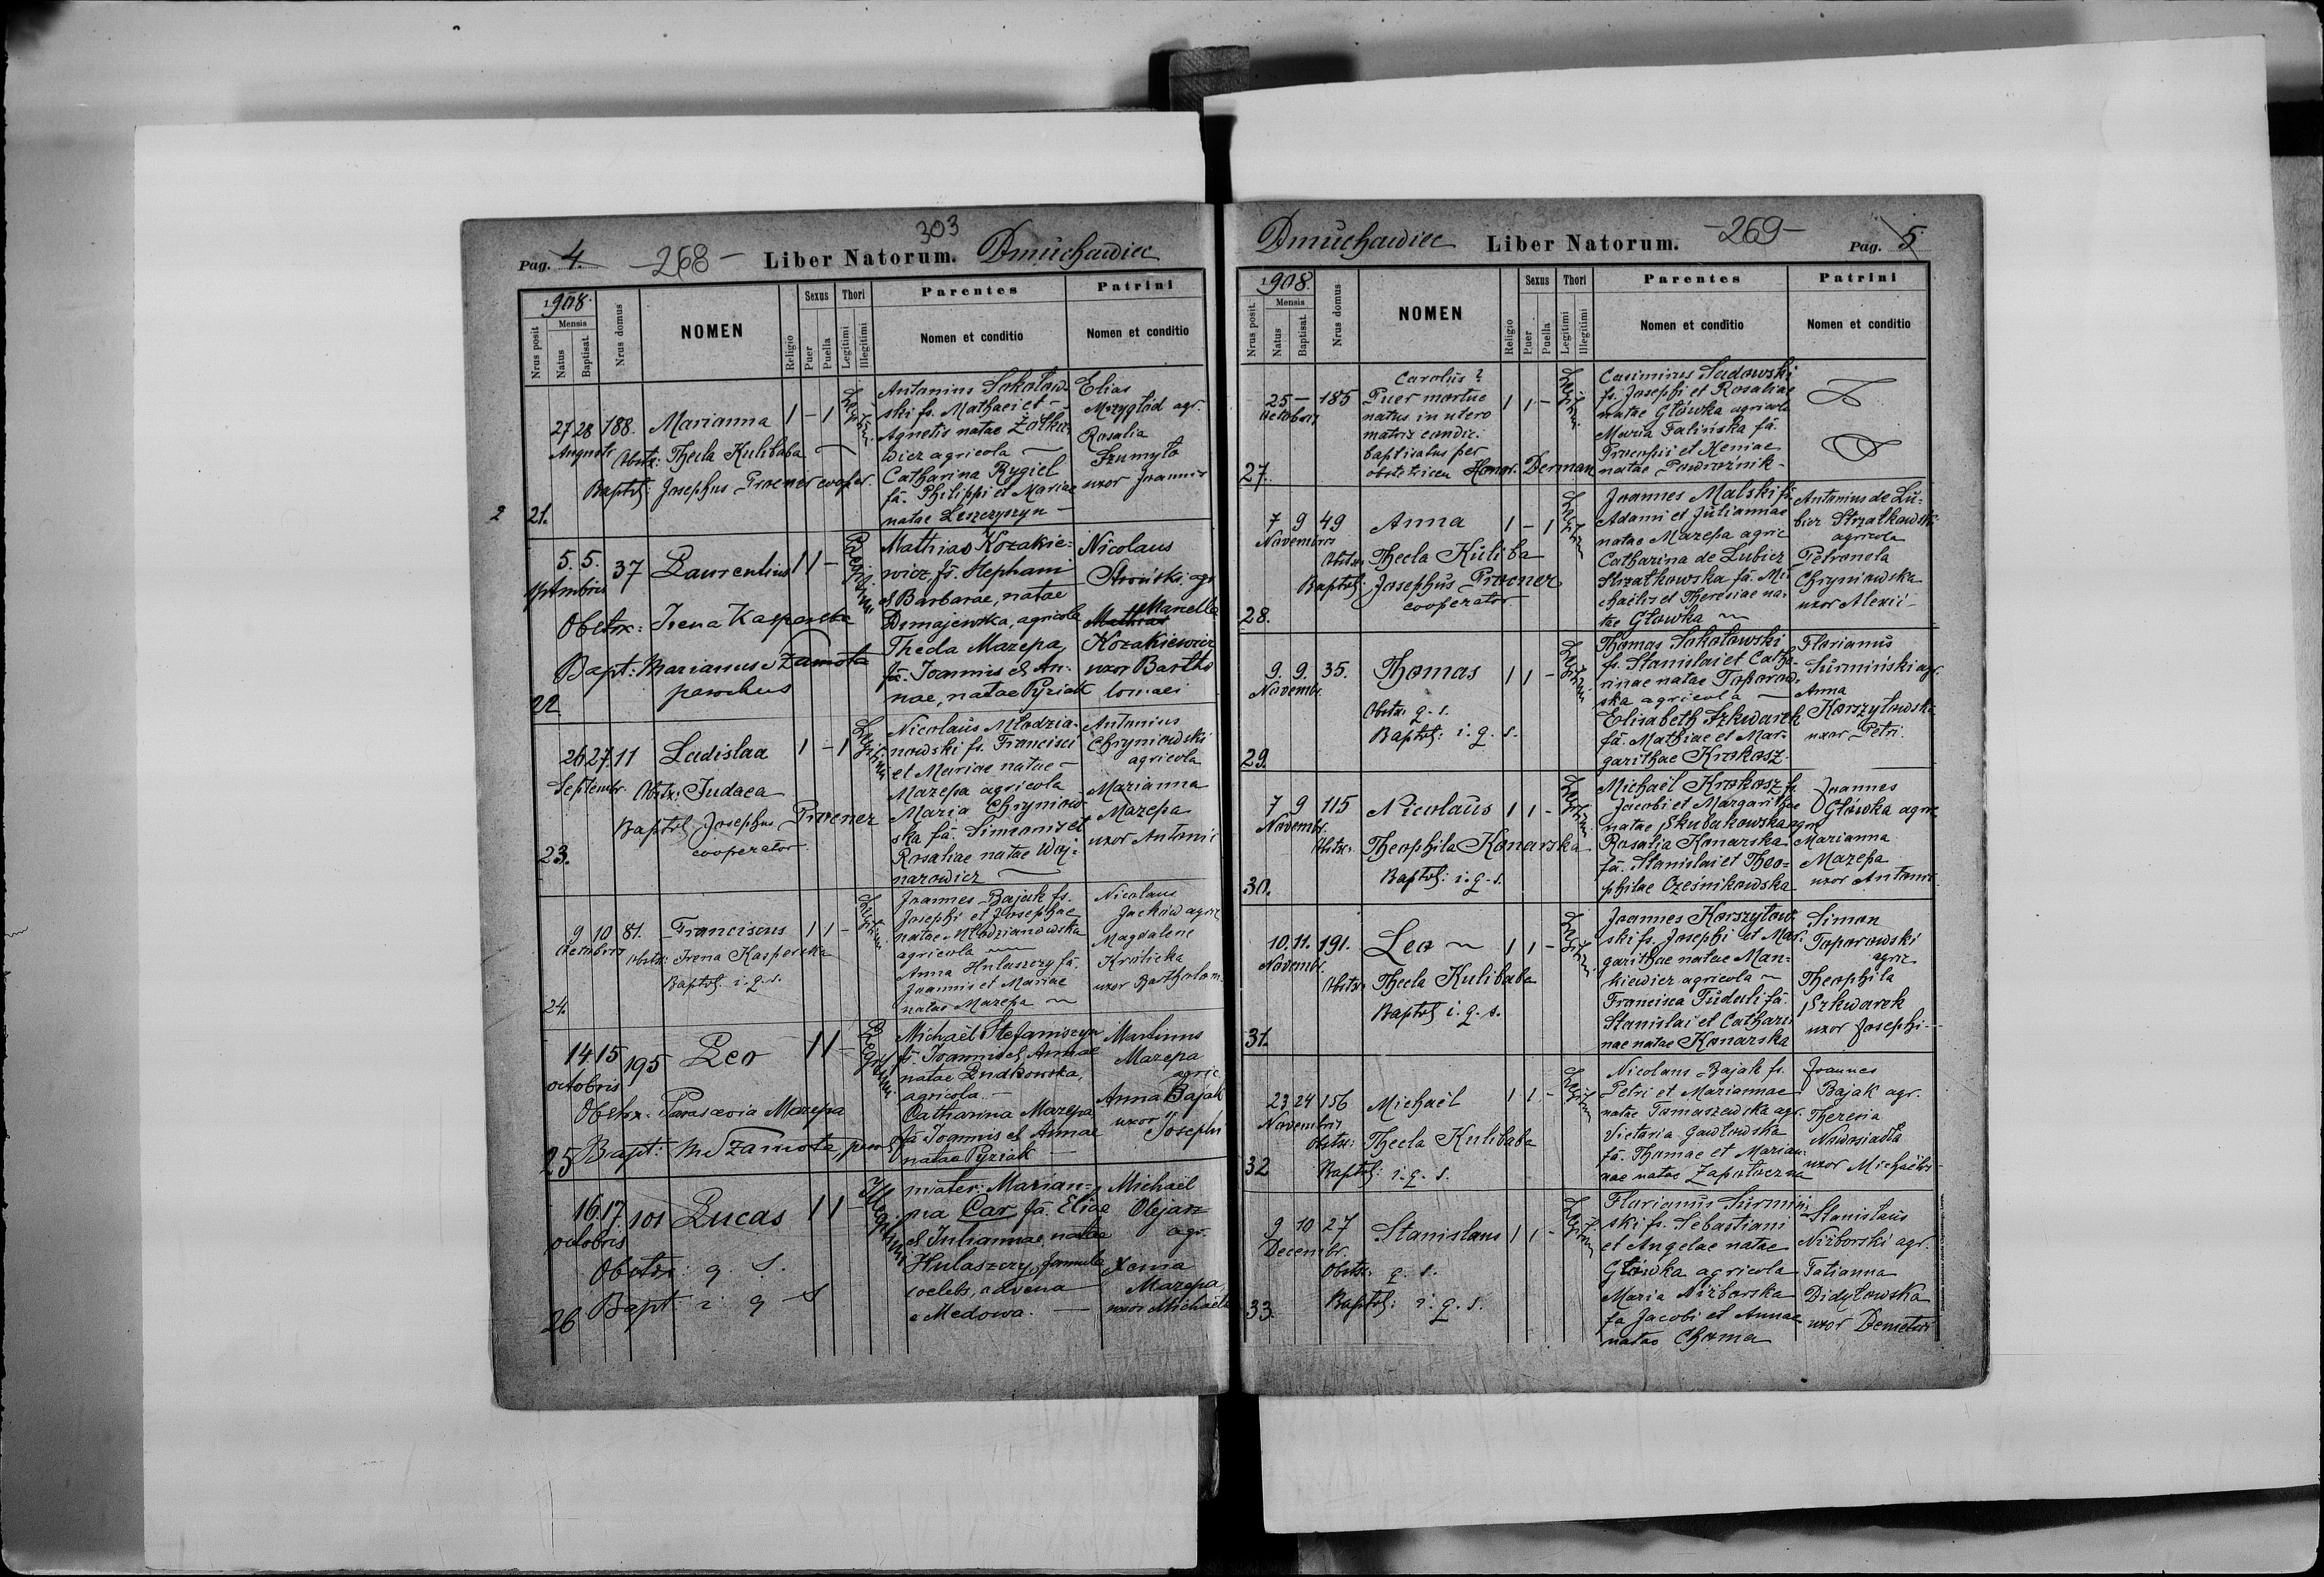 Pag. 4. -268- Liber Natorum. 303 Dmuchawiec
1908.
Nrus posit
Mensis
Natus
Baptisat.
Nrus domus
NOMEN
Religio
Sexus
Puer
Puella
Thori
Legitimi
Illegitimi
Parentes
Nomen et conditio
Patrini
Nomen et conditio
2 21.
27 28 188. Marianna 1 - 1 Legitimi
Augusti Obstx: Thecla Kulibaba
Baptst: Josephus Procner cooper.
Antonius Sokołow-
ski fs. Mathaei et -
Agnetis natae Żołkie-
wicz agricola
Catharina Rygiel
fa. Philippi et Mariae
natae Leszczyszyn -
Elias
Mozygłód agr.
Rosalia
Szumyło
uxor Joannis
22
5. 5. 37 Laurentius 1 1 - Legitimi
Obstx: Irena Kasperska
Bapt: Marianus Szamota
parochus
Mathias Kozakie=
wicz, fs. Stephani
et Barbarae, natae
Dmajewska, agricola
Thecla Mazepa,
fa. Joannis et An-
nae, natae Pyziak
Nicolaus
Stroński agr
Mathias Marcella
Kozakiewicz
uxor Bartho
lomaei
23.
26 27 11 Ladislaa 1 - 1 Legitimi
Septembr. Obstx: Judaea
Baptst Josephus Procner
cooperator
Nicolaüs Młodzia-
nowski fs. Francisci
et Mariae natae -
Mazepa agricola
Maria Chryniow-
ska fa. Simeonis et
Rosaliae natae Woj-
narowicz
Antonius
Chryniowski
agricola
Marianna
Mazepa
uxor Antonii
24.
9 10 81. Franciscus 1 1 - Legitimi
Octobris Obstx: Irena Kasperska
Baptst. i. q. s.
Joannes Bajak fs.
Josephi et Josephae
natae Młodzianowska
agricola
Anna Hulaszczy fa.
Joannis et Mariae
natae Mazepa
Nicolaus
Jacków agric
Magdalene
Królicka
uxor Bartholom.
25
14 15 195 Leo 1 1 - Legitimi
octobris
Obstx. Parascevia Mazepa
Bapt: M Szamota, paro
Michaël Stefaniszyn
fs Joannis et Annae
natae Rudkowska,
agricola. -
Catharina Mazepa
fa Joannis et Annae
natae Pyziak -
Martinus
Mazepa
agric
Anna Bajak
uxor Josephi
26
16 17. 101 Lucas 1 1 - Illegitimi
octobris
Obstx: q. S.
Bapt: i q S
mater: Marian=
na Car fa. Eliae
et Juliannae, natae
Hulaszczy, famula
coelebs, advena
e Medowa. -
Michaël
Olejarz
agr.
Xenia
Mazepa
uxor Michaëlis
Dmuchawiec Liber Natorum. -269- Pag. 5
1908.
Nrus posit.
Mensis
Natus
Baptisat.
Nrus domus
NOMEN
Religio
Sexus
Puer
Puella
Thori
Legitimi
Illegitimi
Parentes
Nomen et conditio
Patrini
Nomen et conditio
27.
25 - 185 Carolus ?
Octobris Puer mortue 1 1 - Legitimi
natus in utero
matris condic.
baptisatus per
obstetricem Honor. Derman
Casimirus Sadowski
fs. Josephi et Rosaliae
natae Główka agricola
Maria Falińska fa.
Procopii et Xeniae
natae Powroźnik -
28.
7 9 49 Anna 1 - 1 Legitimi
Novembris
Obstx. Thecla Kuliba
Baptst: Josephus Procner
cooperator
Joannes Malski fs.
Adami et Juliannae
natae Mazepa agric
Catharina de Lubicz
Strzałkowska fa. Mi-
chaëlis et Theresiae na-
tae Główka
Antonius de Lu-
bicz Strzałkowski
agricola
Petronela
Chryniowska
uxor Alexii -
29.
9. 9. 35. Thomas 1 1 - Legitimi
Novembr.
Obstx. q. s.
Baptst: i. q. s.
Thomas Sokołowski
fs. Stanislai et Catha-
rinae natae Toporow-
ska agricola
Elisabeth Szkwarek
fa. Mathiae et Mar-
garithae Krokosz
Florianus
Surmiński agr.
Anna
Korszyłowska
uxor Petri.
30.
7 9 115 Nicolaüs 1 1 - Legitimi
Novembr.
Obstx. Theophila Konarska
Baptst: i. q. s.
Michaël Krokosz fs.
Jacobi et Margarithae
natae Skubakowska agr
Rosalia Konarska
fa. Stanislai et Theo-
philae Cześnikowska
Joannes
Główka agric
Marianna
Mazepa
uxor Antonii
31.
10. 11. 191. Leo 1 1 - Legitimi
Novembr.
Obstx. Thecla Kulibaba
Baptst i. q. s.
Joannes Korszyłow-
ski fs. Josephi et Mar-
garithae natae Man-
kiewicz agricola
Francisca Tuduli fa.
Stanislai et Cathari-
nae natae Konarska
Simon
Toporowski
agric
Theophila
Szkwarek
uxor Josephi -
32
23 24 156 Michaël 1 1 - Legitimi
Novembris
Obstx: Thecla Kulibaba
Baptst: i. q. s.
Nicolaus Bajak fs.
Petri et Mariannae
natae Tomaszewska agr.
Victoria Gawłowska
fa. Thomae et Marian-
nae natae Zapotoczna
Joannes
Bajak agr.
Theresia
Nowosiadła
uxor Michaëlis -
33.
9 10 27 Stanislaus 1 1 - Legitimi
Decembr.
Obstx. q. s.
Baptst: i. q. s.
Florianus Surmiń
ski fs. Sebastiani
et Angelae natae
Główka agricola
Maria Niżborska
fa Jacobi et Annae
natae Choma
Stanislaus
Niżborski agr.
Tatianna
Didyłowska
uxor Demetrii